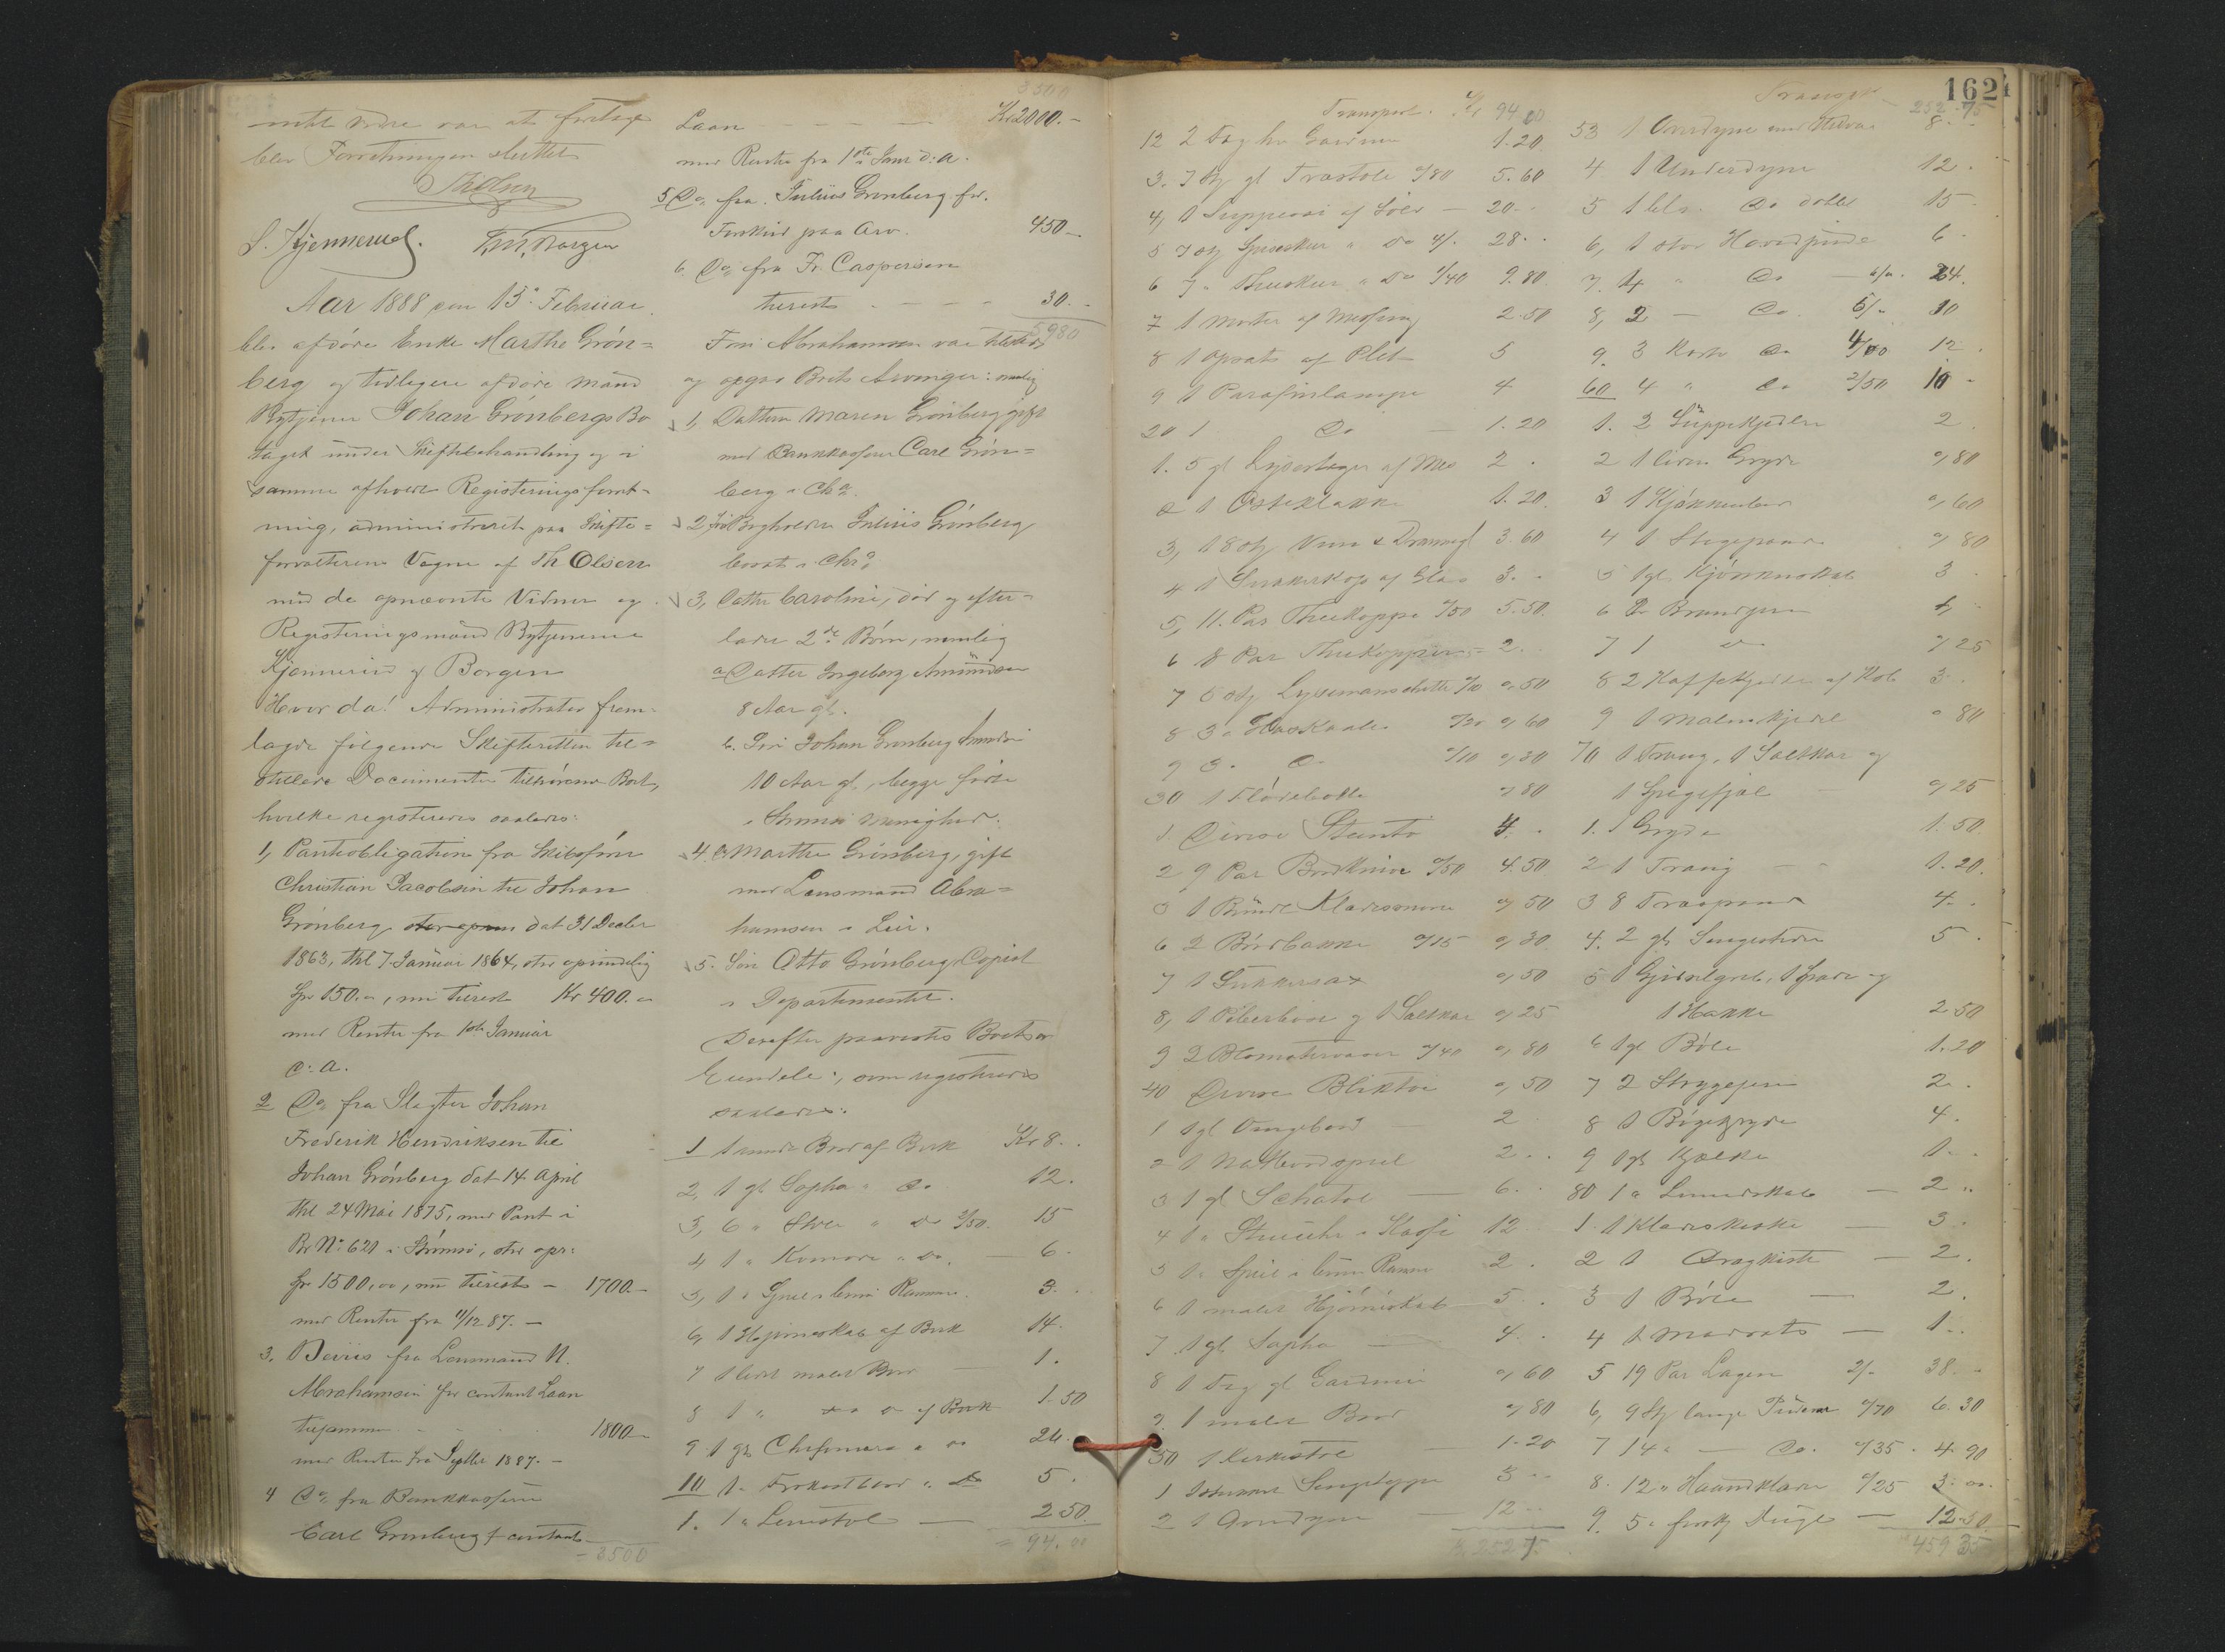 mere var at foretage
blev Forretningen sluttet
ThOlsen
S. Kjennerud. Borgen
Aar 1888 den 15de Februar
blev afdøde Enke Marthe Grøn=
berg og tidligere afdøde Mand
Bytjener Johan Grønbergs Bo
taget under Skiftebehandling og i
samme afholdt Registreringsforret-
ning, administreret paa Skifte=
forvalterens Vegne af Th Olsen
med de opnævnte Vidner og
Registreringsmænd Bytjenerne
Kjennerud og Borgen
Hvor da! Administrator frem-
lagde følgende Skifteretten til=
stillede Documenter tilhørende Boet,
hvilke registreredes saaledes:
1, Pantobligation fra Skibsfører
Christian Jacobsen til Johan
Grønberg dat 31 Decbr
1863, thl 7 Januar 1864, stor oprindelig
Spd 150.", nu tilrest Kr 400."
med Renter fra 1ste Januar
d: a.
2 Do fra Slagter Johan
Frederik Hendriksen til
Johan Grønberg dat 14 April
thl 24 Mai 1875, med Pant i
Br No 621 i Strømsø, stor opr:
Spd 1500,00, nu tilrest – 1700.–
med Renter fra 11/12 87. –
3. Beviis fra Lensmand N.
Abrahamsen for contant Laan
tilsammen 1800–
med Renter fra Septbr 1887. –
4 Do fra Bankkasserer
Carl Grønberg f contant
3500
3500
Laan Kr 2000.–
med Renter fra 1ste Janr d: a.
5 Do fra Julius Grønberg for
Forskud paa Arv. 450–
6. Do fra Fr. Caspersen
tilrest 30.–
5980
Abrahamsen var tilstede
og opgav Boets Arvinger: nemlig
1, Datteren Maren Grønberg gift
med Bankkasserer Carl Grøn=
berg i Chra.
2, Bogholder Julius Grønberg
bosat i Chra
3, Datter Caroline, død og efter=
lader 2de Børn, nemlig
a Datter Ingeborg Amundsen
8 Aar gl.
b. Søn Johan Grønberg
10 Aar gl, begge fødte
i Strømsø Menighed.
4. Marthe Grønberg, gift
med Lensmand Abra=
hamsen i Lier.
5. Søn Otto Grønberg Copist
i Departementet.
Derefter paavistes Boets
Eiendele, som registreredes
saaledes:
1 1 rundt Bord af Birk Kr 8.
2, 1 gl Sopha " Do 12.
3, 6 " Stole " Do 2/50. 15
4 1 " Komode " Do. – 6.
5, 1 " Speil i brun Ramme. 3.
6, 1 Hjørneskab af Birk 14.
7 1 lidet malet Bord – 1.
8 1 " Do af Birk 1.50
9 1 gl Chifoniere " Do 24.
10 1 " Frokostbord " Do 5.
1. 1 " Lænestol – 2.50
94.00
Transport. Kr 94.00
12 2 Fag hv Gardiner 1.20
3. 7 Stk gl Træstole "/80 5.60
4, 1 Suppeøse af Sølv – 20.
5 7 Stk Spiseskeer " Do 4/. 28.
6 7 " Theskeer " Do 1/40 9.80.
7 1 Morter af Messing 2.50
8 1 Opsats af Plet 5
9 1 Parafinlampe 4
20 1 Do – 1.20
1. 5 gl Lysestager af Mes 2.
2 1 Osteklokke 1.20.
3, 18 Stk Vin & Dramgl 3.60
4 1 Sukkerkop af Glas 3.
5, 11. Par Theekopper "/50 5.50.
6 8 Par Theekopper 2.
7 5 Stk Lysemanschetter "/10 ",50
8 3 " Glasskaale "/20 ",60
9 3. Do "/10 ",30
30 1 Flødebolle ",80
1 Diverse Stentøi 4.
2 9 Par Bordknive "/50 4.50
3 1 Bundt Klædesnore ",50
6 2 Brødbakker "/15 ",30.
7 1 Sukkersax ",50
8, 1 Peberbøsse og 1 Saltkar ",25
9 2 Blomstervaser "/40 ",80
40 Diverse Bliktøi ",50
1 1 gl Vingebord – 2
2 1 Natbord 2.
3 1 gl Schatol – 6.
4 1 " Stueuhr i Kasse 12
5 1 " Speil i brun Ramme 2.
6 1 malet Hjørneskab 5.
7 1 gl Sopha 4.
8 1 Fag gl Gardiner ",60
9. 1 malet Bord ",80
50 1 Lænestol 1.20
1 Sengeteppe 3
2 1 Overdyne – 12
252.75
162
Transpt 252.75
53 1 Overdyne 8.
4 1 Underdyne 12.
5 1 bl. Do dobbl 15
6, 1 stor Hovedpude 6
7. 4 " Do – 6/". 24.
8, 2 – Do. 5/" 10
9. 3 Do 4/00 12
60 4 " Do 2/50 10
1. 2 Suppekjedler 2
2 1 liden Gryde ",80
3 1 Kjøkkenbord ",60
4 1 Stegepande ",80
5 1 gl. Kjøkkenskab 3
6 2 Brandjern 1,
7 1 do ",25
8 2 Kaffekjedler af Kob 3.
9 1 Malmkjedel ",80
70 1 Traug, 1 Saltkar og
1 Spegefjæl ",25
1. 1 Gryde 1.50
2 1 Traug 1.20.
3 8 Træspand 4.
4. 2 gl Sengesteder 5.
5 1 Gjødselgreb, 1 Spade og
1 Hakke 2.50
6 1 gl Bøle 1.20
7 2 Strygejern 2.
8 1 Bøgegryde 4.
9 1 gl Kjælke 1.
80 1 " Linnedskab – 2.
1. 1 Klædeskiste – 3.
2 1 Dragkiste – 2.
3 1 Bøle – 2.
4 1 Madrats – 1.
5 19 Par Lagen 2/. 38.
6, 9 Stk lange Puder "/70 6.30
7 14 " – Do. "/35. 4.90
8. 12 " Haandklæder "/25 3.00.
9. 5 " forskj Duge – 12.50.
459 35